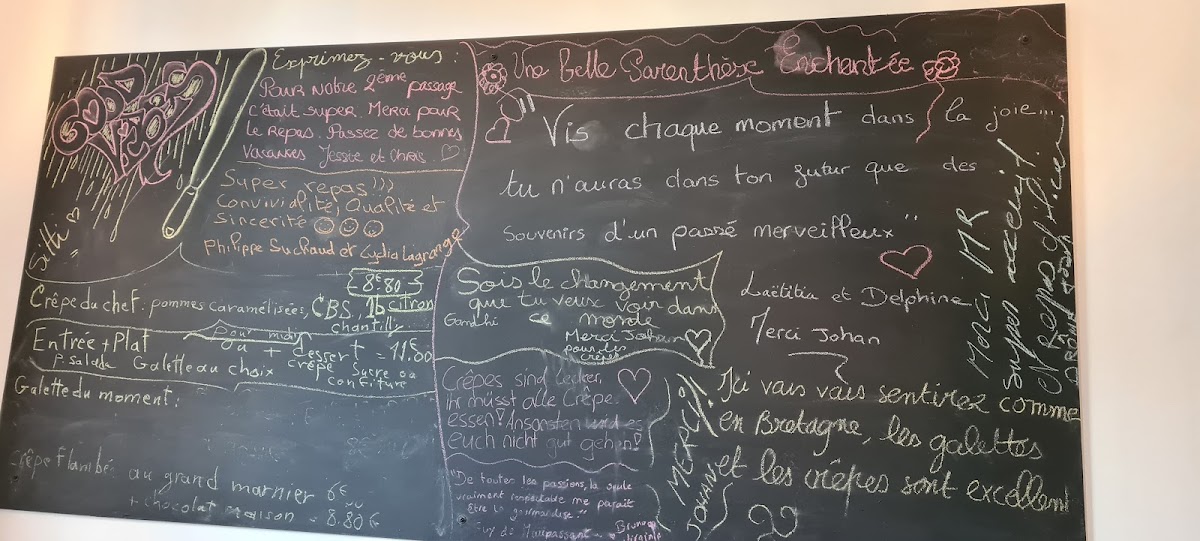 Silli
Exprimez-vous :
Pour notre 2ème passage
c'était super. Merci pour
le repas. Passez de bonnes
vacances Jessie et Chris.
Super repas!!!
Convivialité, Qualité et
Sincerité
Philippe Suchaud et Lydia Lagrange
8€80
Crêpe du chef : pommes caramélisées, CBS, 1b citron
chantilly
Entrée + Plat
pour midi
+ dessert = 11.€80
P. salade Galette au choix
crêpe sucre ou
confiture
Galette du moment :
Crêpe Flambée au grand marnier 6€
+ chocolat maison = 8.80€
Une Belle Parenthèse Enchantée
Vis chaque moment dans la joie...
tu n'auras dans ton futur que des
souvenirs d'un passé merveilleux"
Laëtitia et Delphine
Merci Johan
Sois le changement
que tu veux voir dans
Gandhi ce monde
Merci Johan
pour les
crêpes
Crêpes sind lecker,
ihr müsst alle Crêpe
essen! Ansonsten wird es
euch nicht gut gehen!
"De toutes les passions, la seule
vraiment respectable me paraît
être la gourmandise."
Guy de Maupassant
Bruno
Virginie
MERCI!!
JOHAN
Ici vais vais sentirez comme
en Bretagne, les galettes
et les crêpes sont excellent
Merci MR
Super accueil!